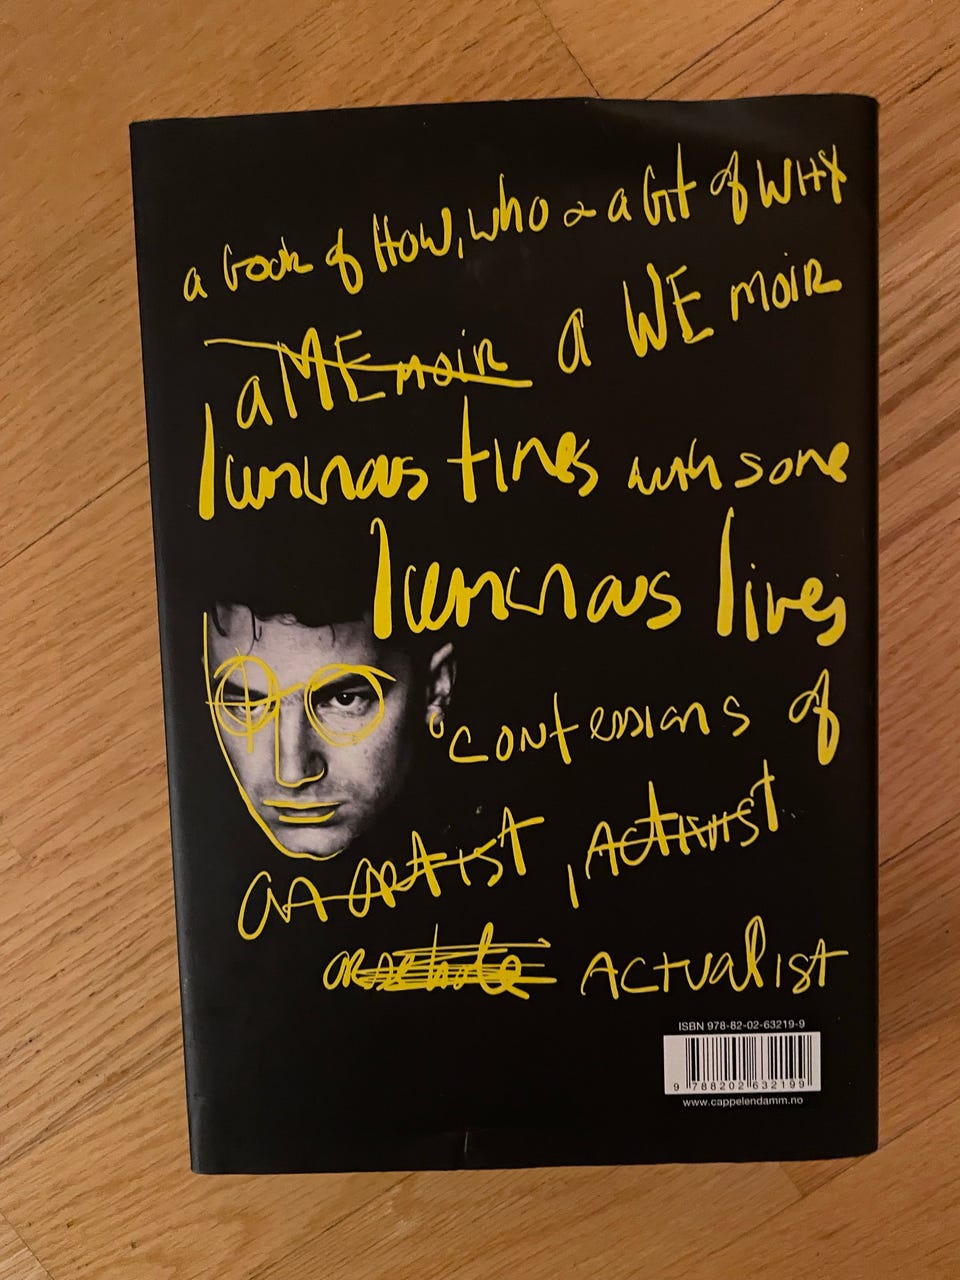 a book of HOW, who & a bit of WHY
a MEmoir a WE moir
luminous times with some
luminous lives
confessions of
an artist, ACTIVIST
arsehole ACTUALIST
ISBN 978-82-02-63219-9
9 788202 632199
www.cappelendamm.no